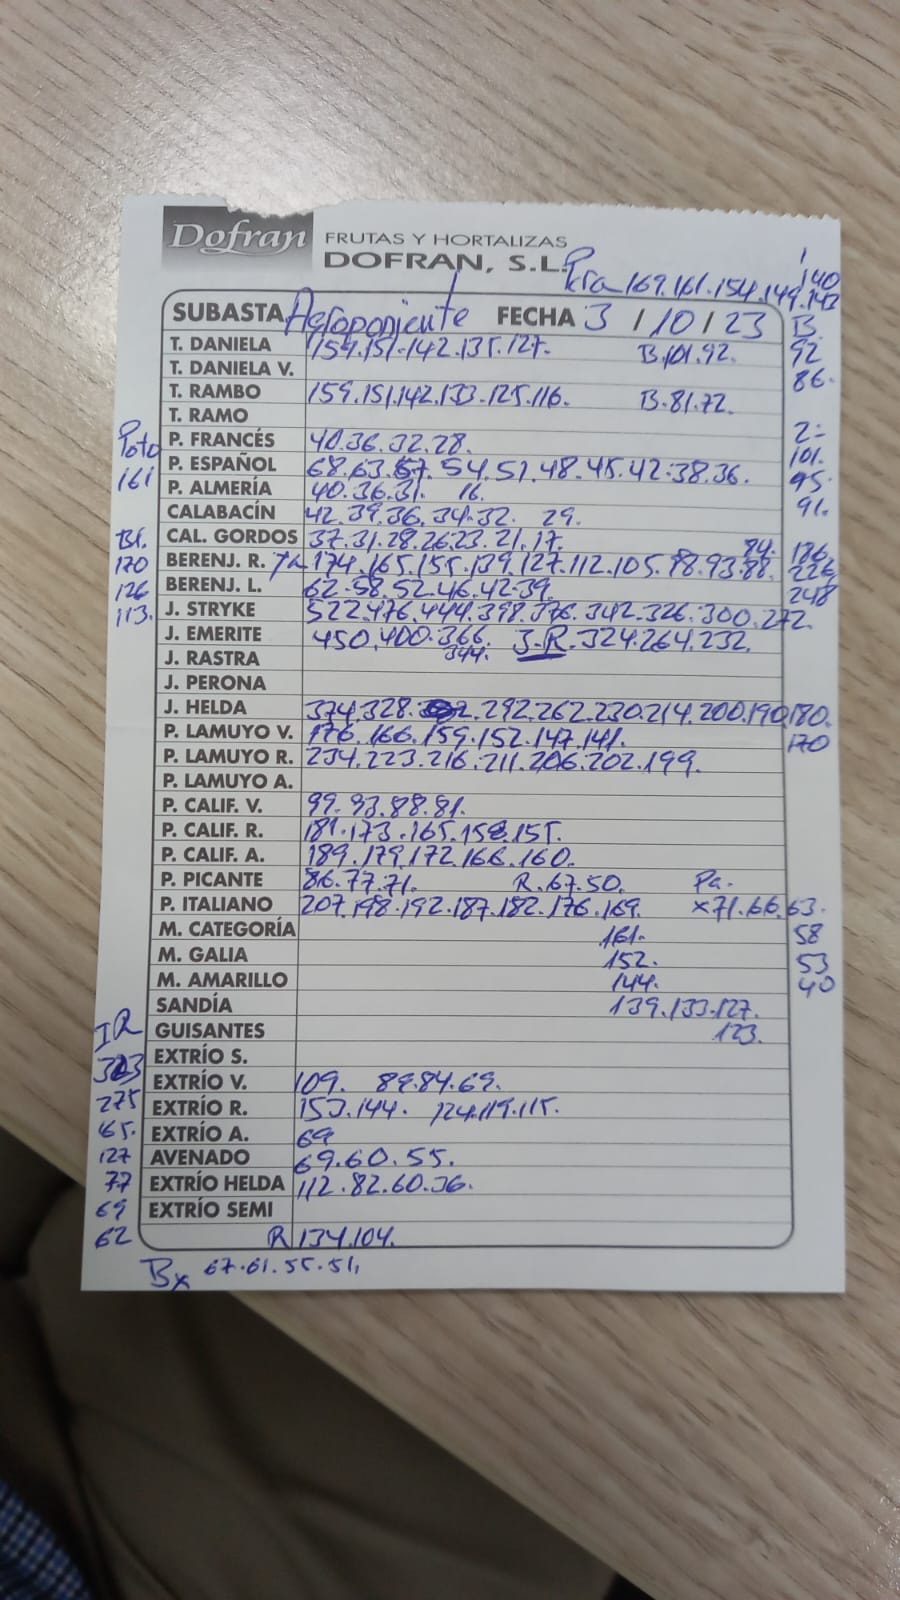 Dofran FRUTAS Y HORTALIZAS
DOFRAN, S.L.
Pera 169.161.154.149.143
140
SUBASTA Agroponiente FECHA 3 / 10 / 23 B
T. DANIELA 159.151.142.135.127. B.101.92. 92
T. DANIELA V. 86.
T. RAMBO 159.151.142.133.125.116. B.81.72.
T. RAMO 2=
P. FRANCÉS 40.36.32.28. 101.
P. ESPAÑOL 68.63.57.54.51.48.45.42.38.36. 95.
161 P. ALMERÍA 40.36.31. 16. 91.
CALABACÍN 42.39.36.34.32. 29.
CAL. GORDOS 37.31.28.26.23.21.17. 84. 186
170 BERENJ. R. 174.165.155.139.127.112.105.98.93.88. 226
126 BERENJ. L. 62.58.52.46.42.39. 248
113. J. STRYKE 522.476.444.398.376.342.326.300.272.
J. EMERITE 450.400.366. 3-R.324.264.232.
344.
J. RASTRA
J. PERONA
J. HELDA 374.328. 292.262.230.214.200.190.180.
P. LAMUYO V. 176.166.159.152.147.141. 170
P. LAMUYO R. 234.223.216.211.206.202.199.
P. LAMUYO A.
P. CALIF. V. 99.93.88.81.
P. CALIF. R. 181.173.165.158.155.
P. CALIF. A. 189.179.172.166.160.
P. PICANTE 86.77.71. R.67.50. Pa.
P. ITALIANO 207.198.192.187.182.176.169. x71.66.63.
M. CATEGORÍA 161. 58
M. GALIA 152. 53
M. AMARILLO 144. 40
SANDÍA 139.133.127.
GUISANTES 123.
EXTRÍO S.
EXTRÍO V. 109. 89.84.69.
275 EXTRÍO R. 153.144. 124.119.115.
165. EXTRÍO A. 69
127 AVENADO 69.60.55.
77 EXTRÍO HELDA 112.82.60.36.
69 EXTRÍO SEMI
62 R 134.104.
Bx 67.61.55.51.